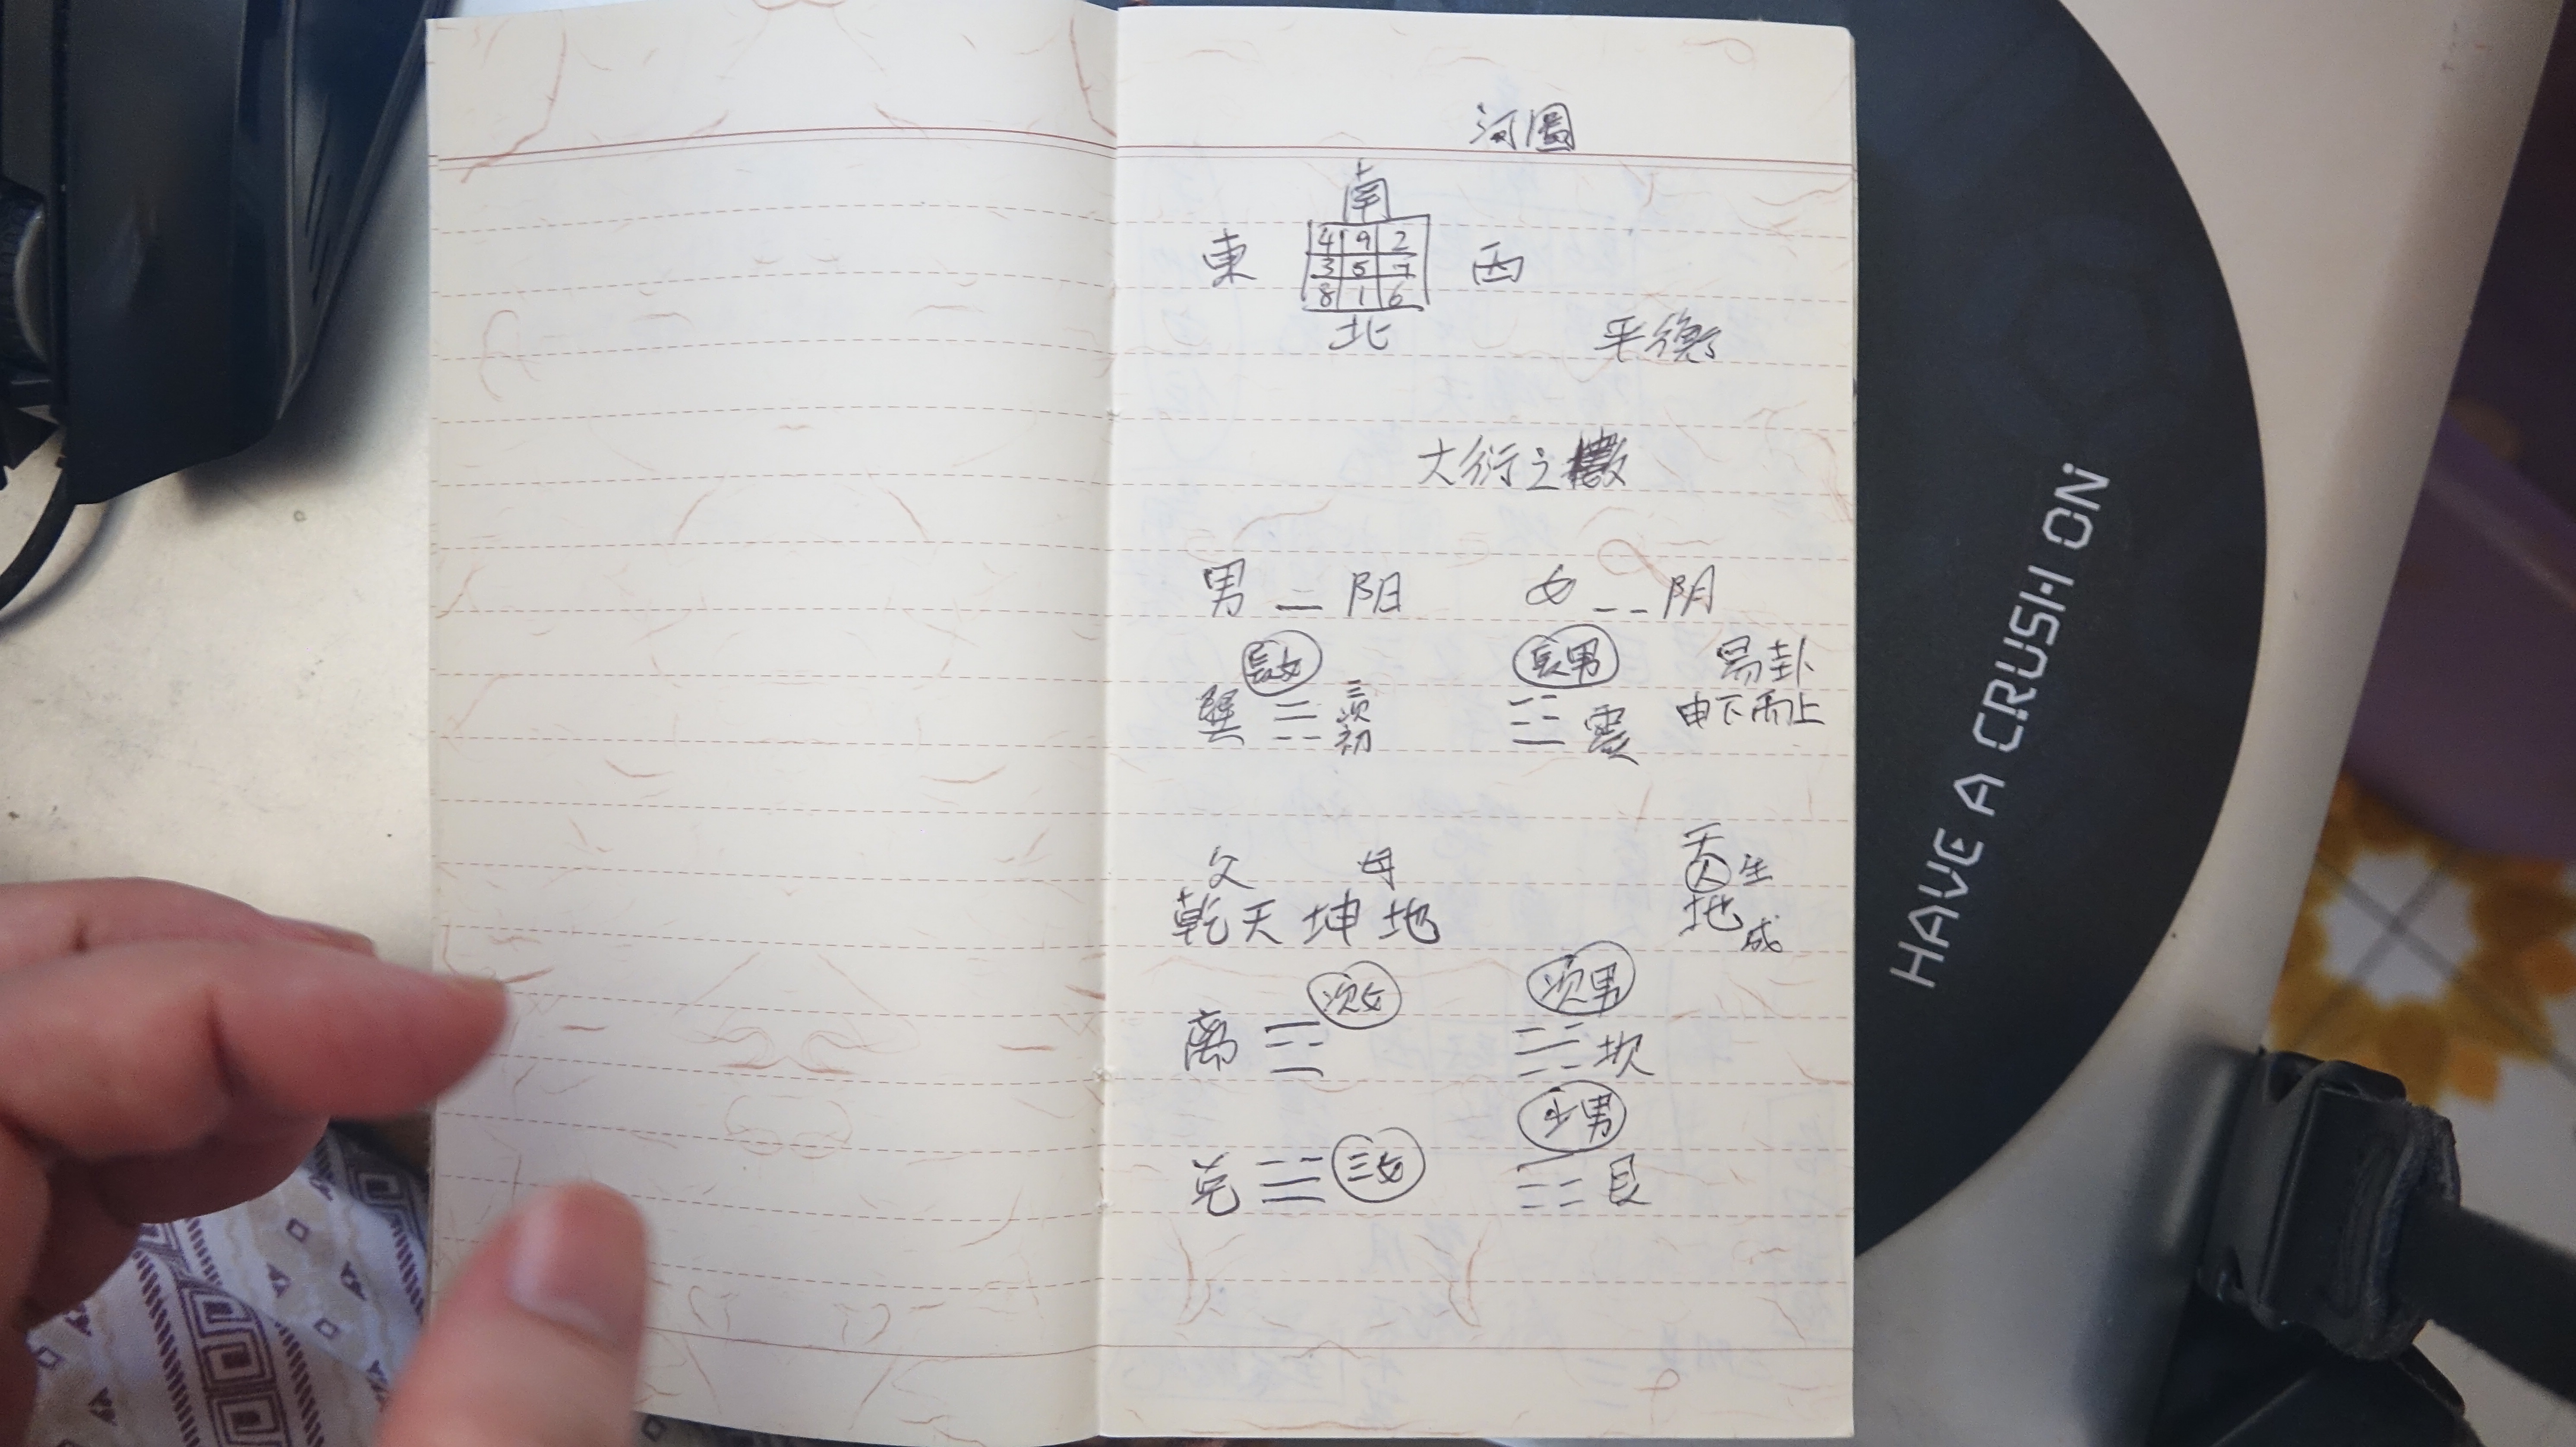 河圖
南
東 4 9 2 西
3 5 7
8 1 6
北
平衡
大衍之數
男 — 阳 女 -- 阴
長女 長男 易卦
巽 ☴ 三 次 初 ☳ 震 由下而上
父 母 天
人 生
乾天 坤地 地 成
次女 次男
离 ☲ ☵ 坎
少男
兑 ☱ 三女 ☶ 艮
HAVE A CRUSH ON